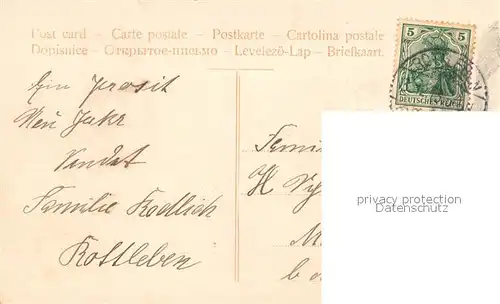 Post card – Carte postale – Postkarte – Cartolina postale
Dopisnice – Открытое письмо – Levelező-Lap – Briefkaart.
5 5
DEUTSCHES REICH
Ein Prosit
Neu Jahr
sendet
Familie Kodlick
Rottleben
Famil
H
privacy protection
Datenschutz